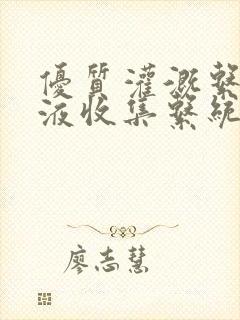 優質灌溉繫
液收集繫統
廖志慧